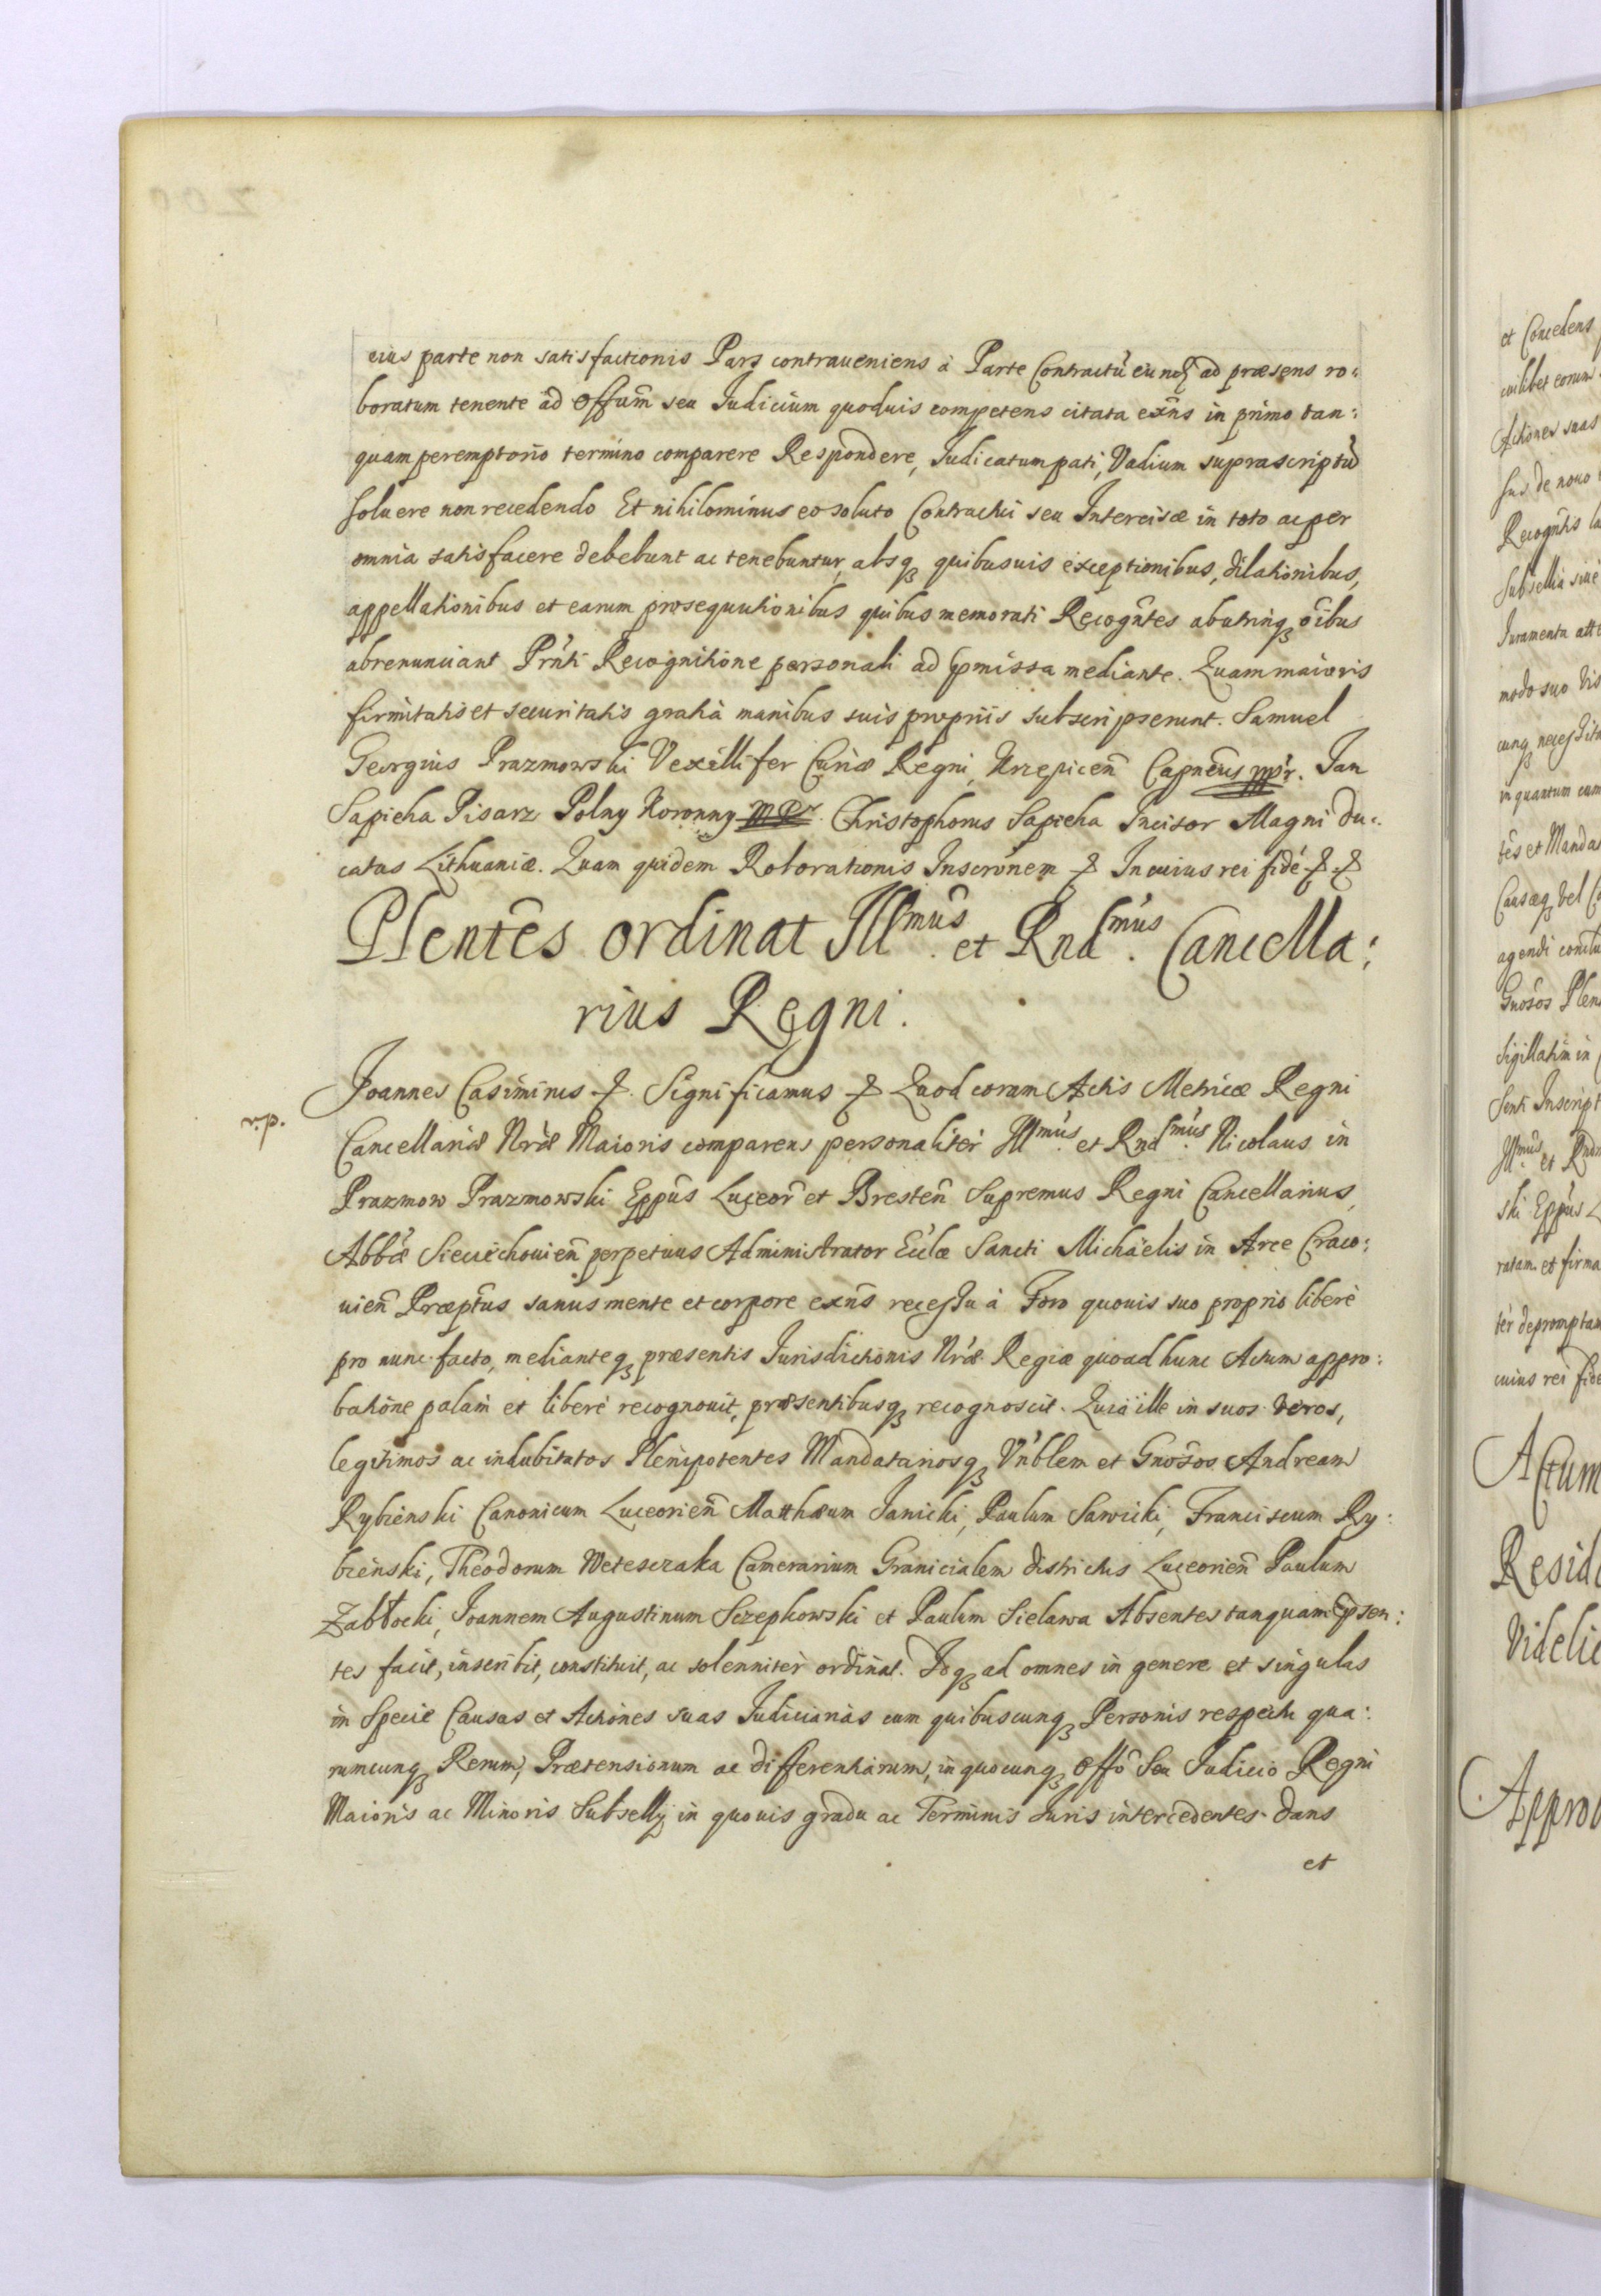 eius parte non satisfactionis Pars contraueniens à Parte Contractũ ad præsens ro:
boratum tenente ad Offũm seu Iudicium quoduis competens citata exñs in primo tan:
quam peremptorio termino comparere Respondere, Iudicatum pati, Vadium suprascriptũ
soluere non recedendo Et nihilominus eo soluto Contractui seu Intercisæ in toto ac per
omnia satisfacere debebunt ac tenebuntur, absqꝫ quibusuis exceptionibus, dilationibus,
appellationibus et earum prosequutionibus quibus memorati Recogñtes abutrinqꝫ oĩbus
abrenunciant Prñti Recognitione personali ad p̃missa mediante. Quam maioris
firmitatis et securitatis gratia manibus suis proprijs subscripserunt. Samuel
Georgius Prazmowski Vexillifer Curiæ Regni, Krzepiceñ Capneus mpr. Jan
Sapieha Pisarz Polny Koronny MPr. Christophorus Sapieha Incisor Magni Du:
catus Lithuaniæ. Quam quidem Roborationis Inscrõnem & In cuius rei fidẽ &. &
Plentẽs ordinat Illmũs. et Rndmũs. Cancella:
rius Regni.
Joannes Casimirus &. Significamus & Quod coram Actis Metricæ Regni
r.p.
Cancellariæ Nræ̃ Maioris comparens personaliter Illmũs. et Rndmũs. Nicolaus in
Prazmow Prazmowski Eppũs Luceor̃ et Bresteñ Supremus Regni Cancellarius,
Abbæ̃ Sieciechouieñ perpetuus Administrator Ecclæ̃ Sancti Michaëlis in Arce Craco:
uieñ Præptũs sanus mente et corpore exñs recessu à Foro quouis suo proprio liberè
pro nunc facto, medianteqꝫ præsentis Iurisdictionis Nræ̃ Regiæ quoad hunc Actum appro:
batione palam et liberè recognouit, præsentibusqꝫ recognoscit. Quia ille in suos veros,
legitimos ac indubitatos Plenipotentes Mandatariosqꝫ Vñblem et Gnõsos Andream
Rybienski Canonicum Luceorieñ Matthæum Janicki, Paulum Sawicki, Franciscum Ry:
bienski, Theodorum Weteszczaka Camerarium Granicialem districtus Luceorieñ Paulum
Zabłocki, Joannem Augustinum Szczepkowski et Paulum Sielawa Absentes tanquam p̃sen:
tes facit, inscribit, constituit, ac solenniter ordinat. Idqꝫ ad omnes in genere et singulas
in Specie Causas et Actiones suas Iudiciarias cum quibuscunqꝫ Personis respectu qua:
rumcunqꝫ Rerum, Prætensionum ac differentiarum, in quocunqꝫ Offõ Seu Iudicio Regni
Maioris ac Minoris Subsellij in quouis gradu ac Terminis Iuris intercedentes. Dans
et
et Concedens
cuilibet eorum
Actiones suas
sus de nouo
Recogñtis
Subsellia siue
Iuramenta
modo suo
cunqꝫ
in quantum cum
tẽs et
Causaqꝫ vel
agendi
Gnõsos Plen
sigillatim in
senti Inscript
Illmũs. et
ski Eppũs
ratam et firma
ter depromptam
cuius rei fide
Actum
Reside
Videlic
Approb